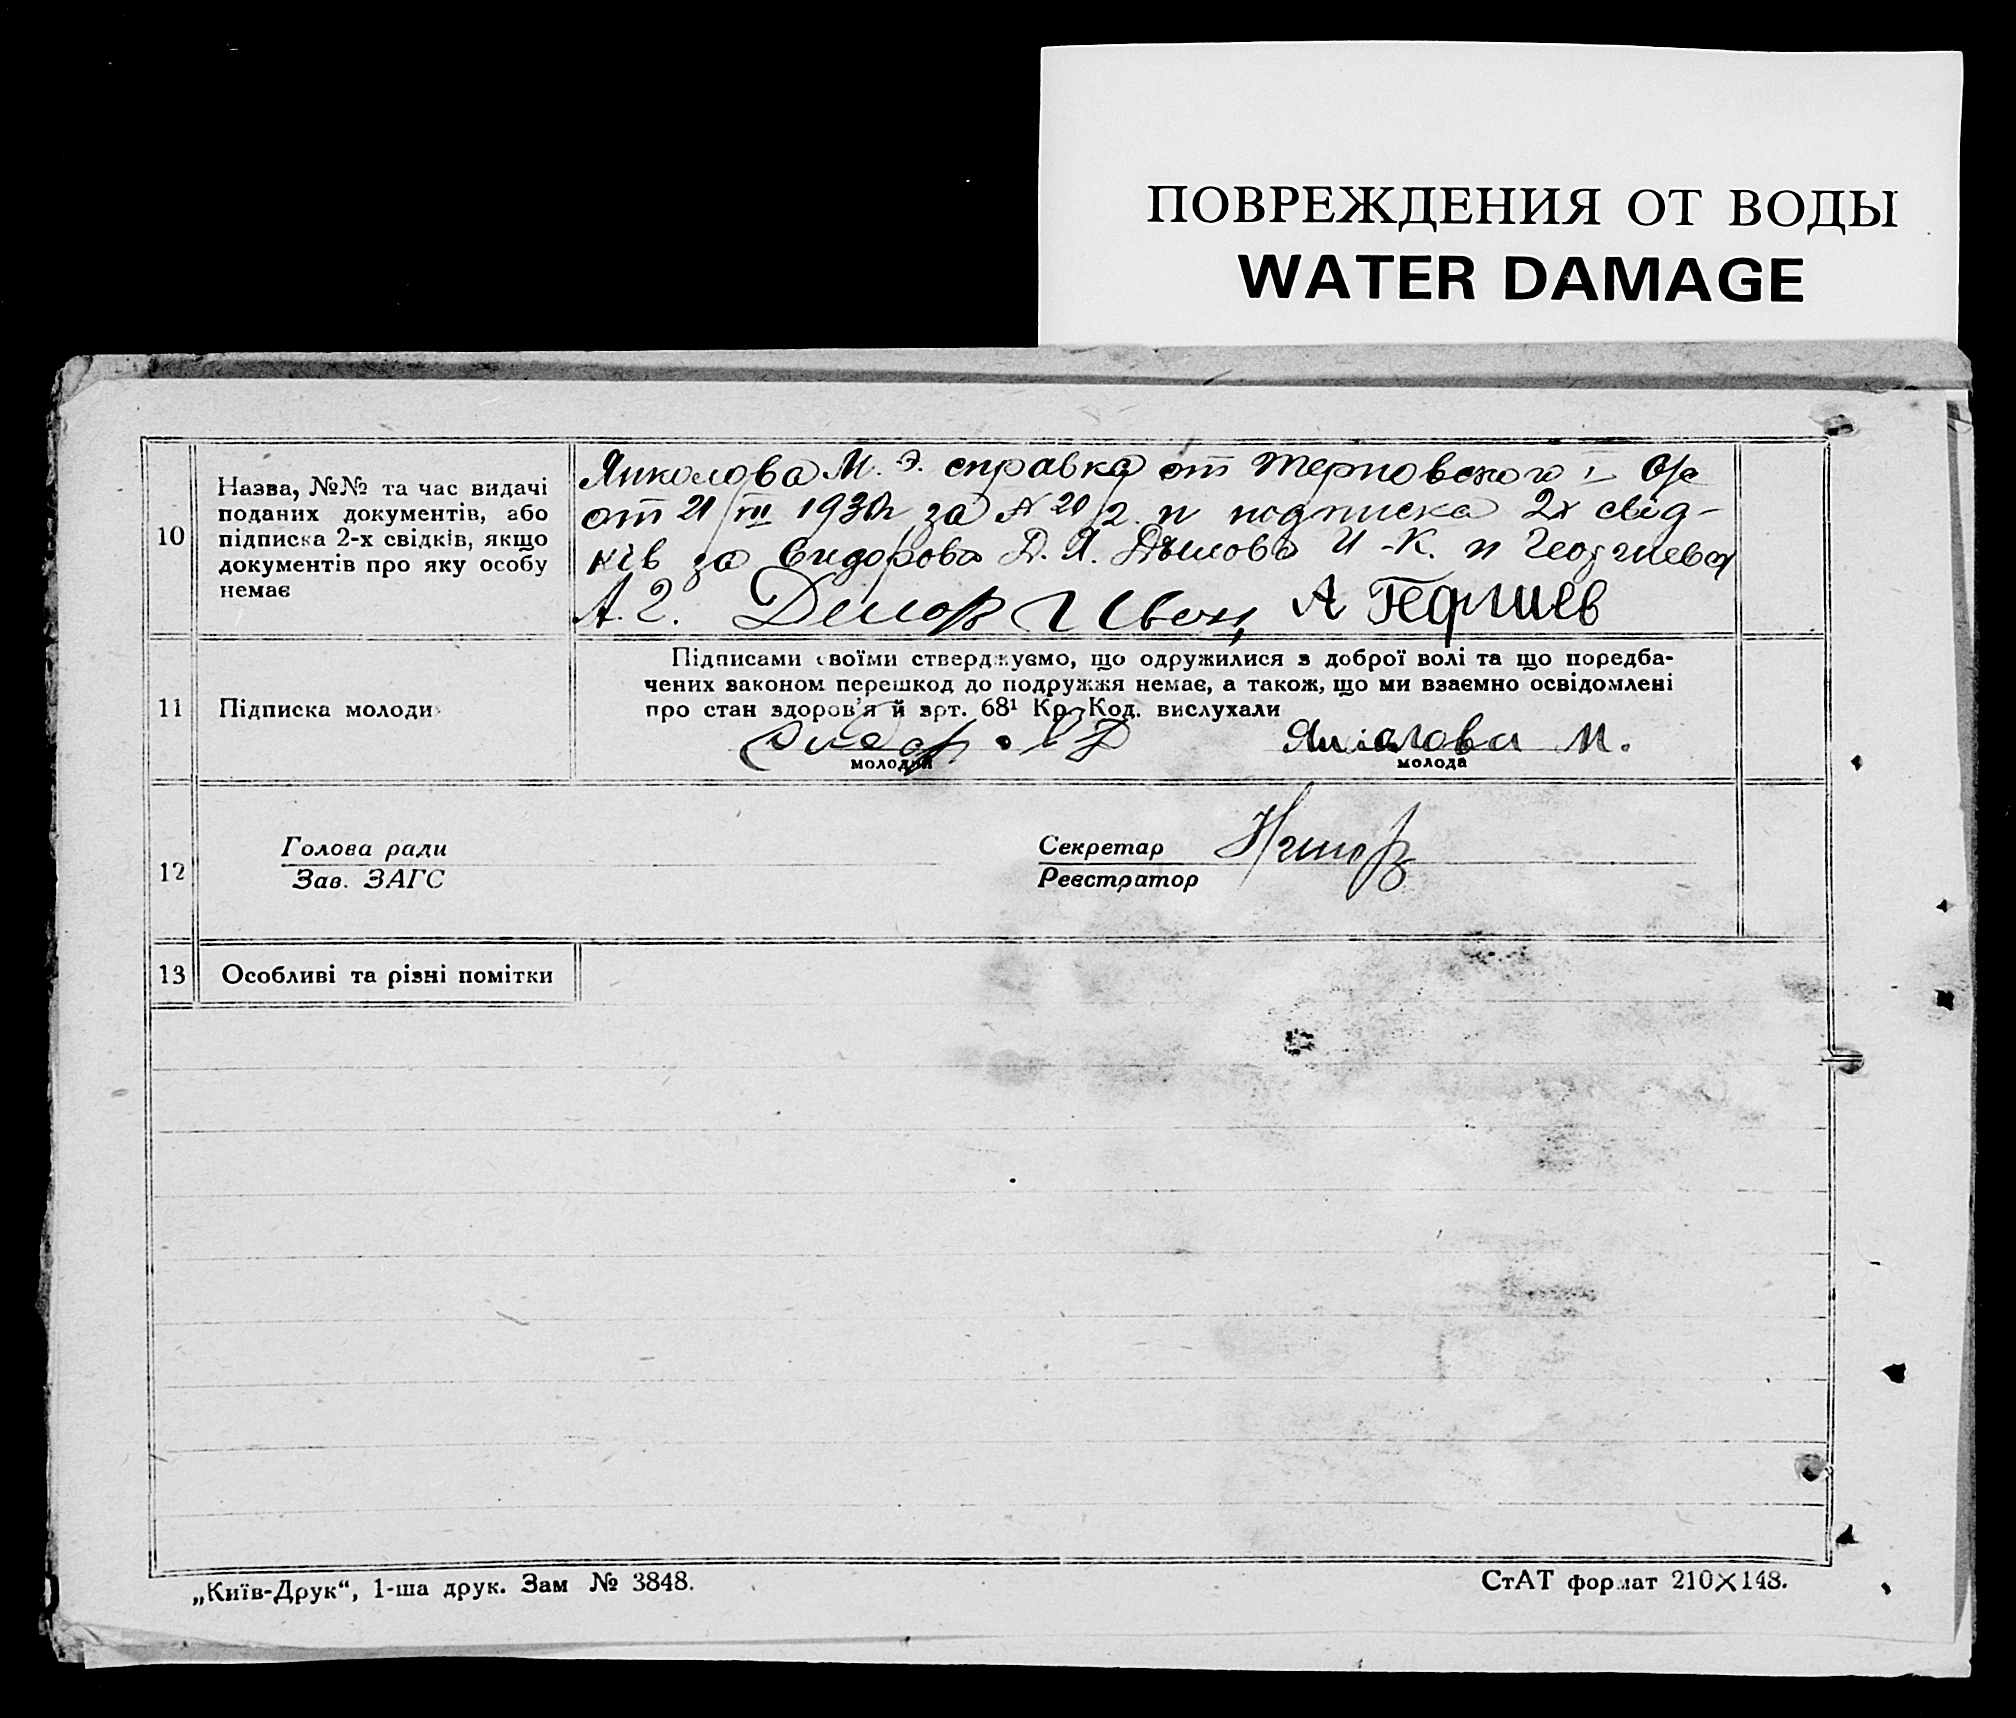 ПОВРЕЖДЕНИЯ ОТ ВОДЫ
WATER DAMAGE
10
Назва, №№ та час видачі
поданих документів, або
підписка 2-х свідків, якщо
документів про яку особу
немає
М. Э. справка от Терновского
от 21/VII 193 за № 20/2 и подписка 2х свід-
ків за Сидорова Д. Я. И-К. и Георгиева
А. Г. Иван, А
11
Підписка молоди
Підписами своїми стверджуємо, що одружилися з доброї волі та що поредба-
чених законом перешкод до подружжя немає, а також, що ми взаємно освідомлені
про стан здоров'я й арт. 68¹ Кр. Код. вислухали
М.
молодий
молода
12
Голова ради
Зав. ЗАГС
Секретар
Реєстратор
13
Особливі та різні помітки
„Київ-Друк“, 1-ша друк. Зам № 3848.
СтАТ формат 210×148.